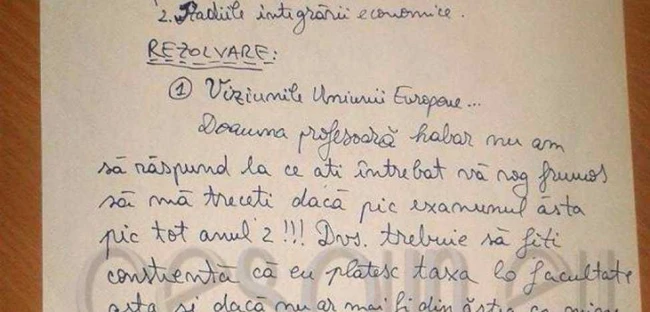 2. Stadiile integrării economice.
REZOLVARE:
1 Viziunile Uniunii Europene...
Doamna profesoară habar nu am
să răspund la ce ati întrebat vă rog frumos
să mă treceti dacă pic examenul ăsta
pic tot anul 2!!! Dvs. trebuie să fiti
constientă că eu plătesc taxa la facultate
asta si dacă nu ar mai fi din ăstia ca mine